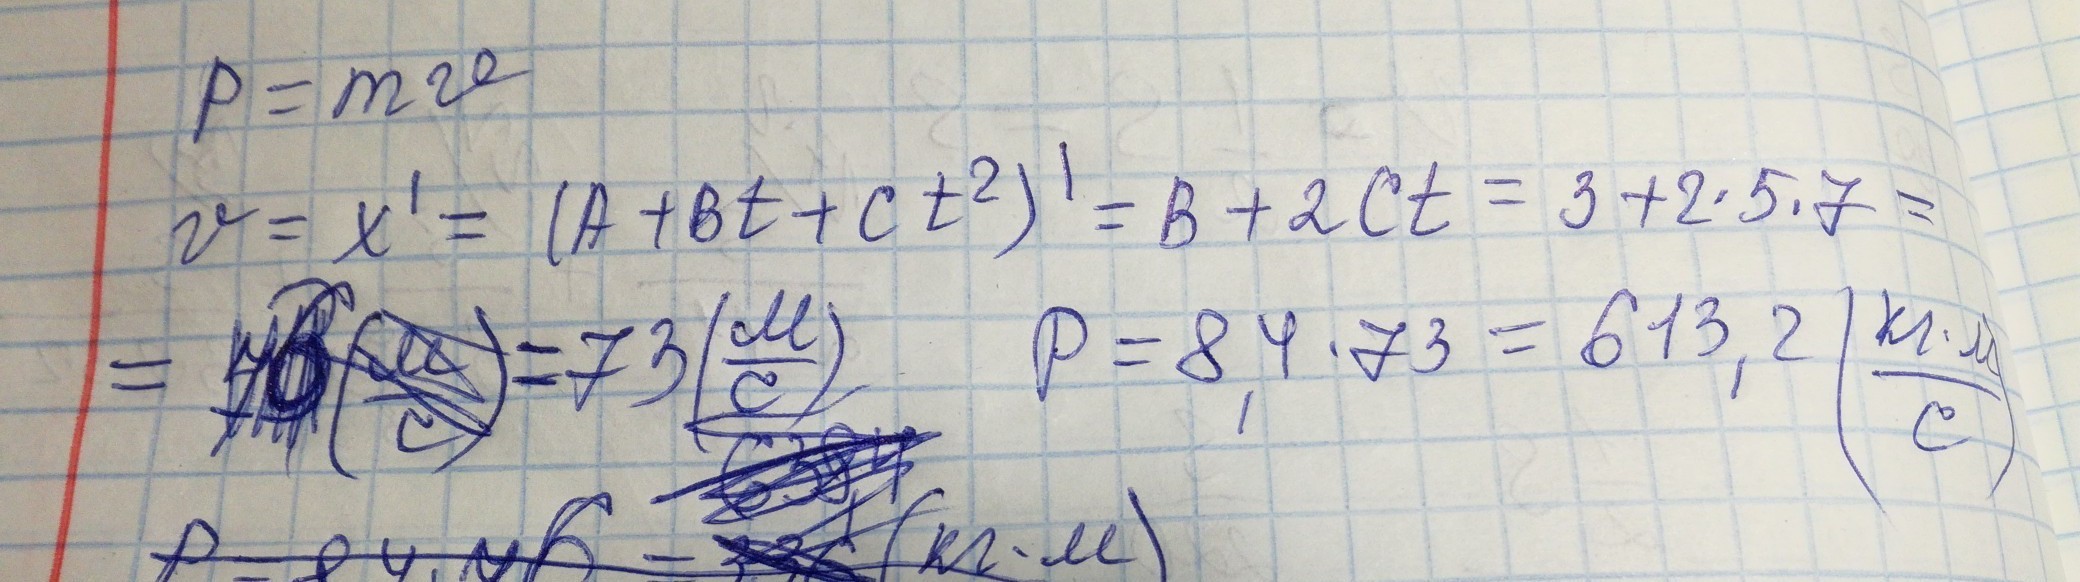 p = mv
v = x' = (A + Bt + Ct²)' = B + 2Ct = 3 + 2·5·7 =
= = 73 (м/с) p = 8,4·73 = 613,2 (кг·м/с)
p = 84· = (кг·м)